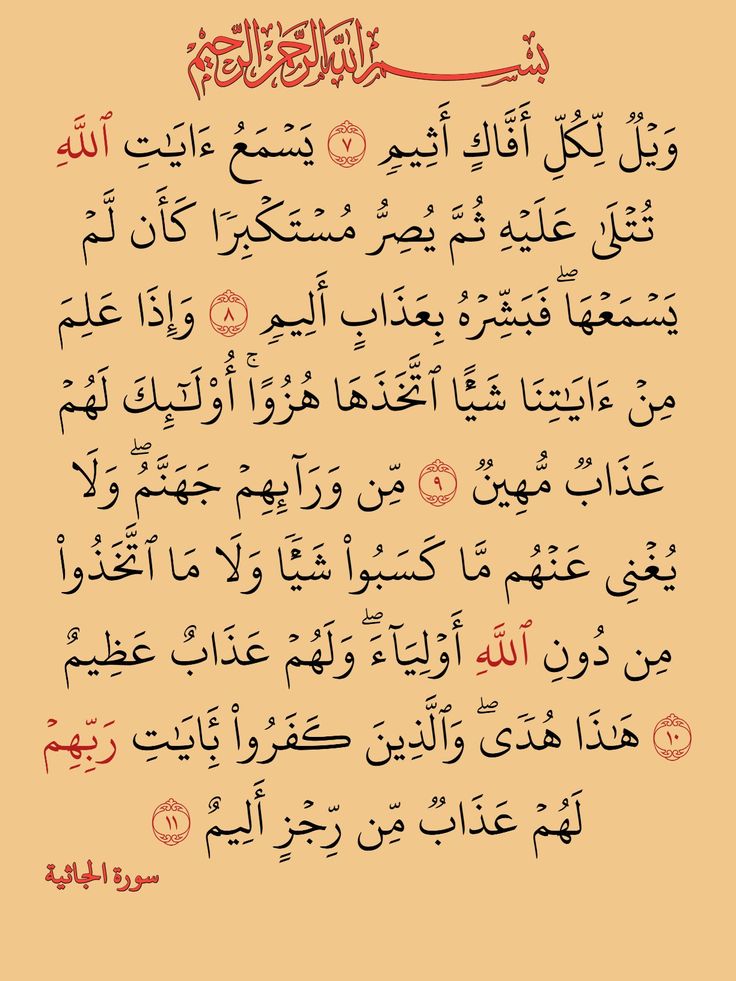 بسم الله الرحمن الرحيم
وَيْلٌ لِّكُلِّ أَفَّاكٍ أَثِيمٍ ٧ يَسْمَعُ ءَايَٰتِ ٱللَّهِ
تُتْلَىٰ عَلَيْهِ ثُمَّ يُصِرُّ مُسْتَكْبِرًا كَأَن لَّمْ
يَسْمَعْهَا ۖ فَبَشِّرْهُ بِعَذَابٍ أَلِيمٍ ٨ وَإِذَا عَلِمَ
مِنْ ءَايَٰتِنَا شَيْـًٔا ٱتَّخَذَهَا هُزُوًا ۚ أُو۟لَٰٓئِكَ لَهُمْ
عَذَابٌ مُّهِينٌ ٩ مِّن وَرَآئِهِمْ جَهَنَّمُ ۖ وَلَا
يُغْنِى عَنْهُم مَّا كَسَبُوا۟ شَيْـًٔا وَلَا مَا ٱتَّخَذُوا۟
مِن دُونِ ٱللَّهِ أَوْلِيَآءَ ۖ وَلَهُمْ عَذَابٌ عَظِيمٌ
١٠ هَٰذَا هُدًى ۖ وَٱلَّذِينَ كَفَرُوا۟ بِـَٔايَٰتِ رَبِّهِمْ
لَهُمْ عَذَابٌ مِّن رِّجْزٍ أَلِيمٌ ١١
سورة الجاثية